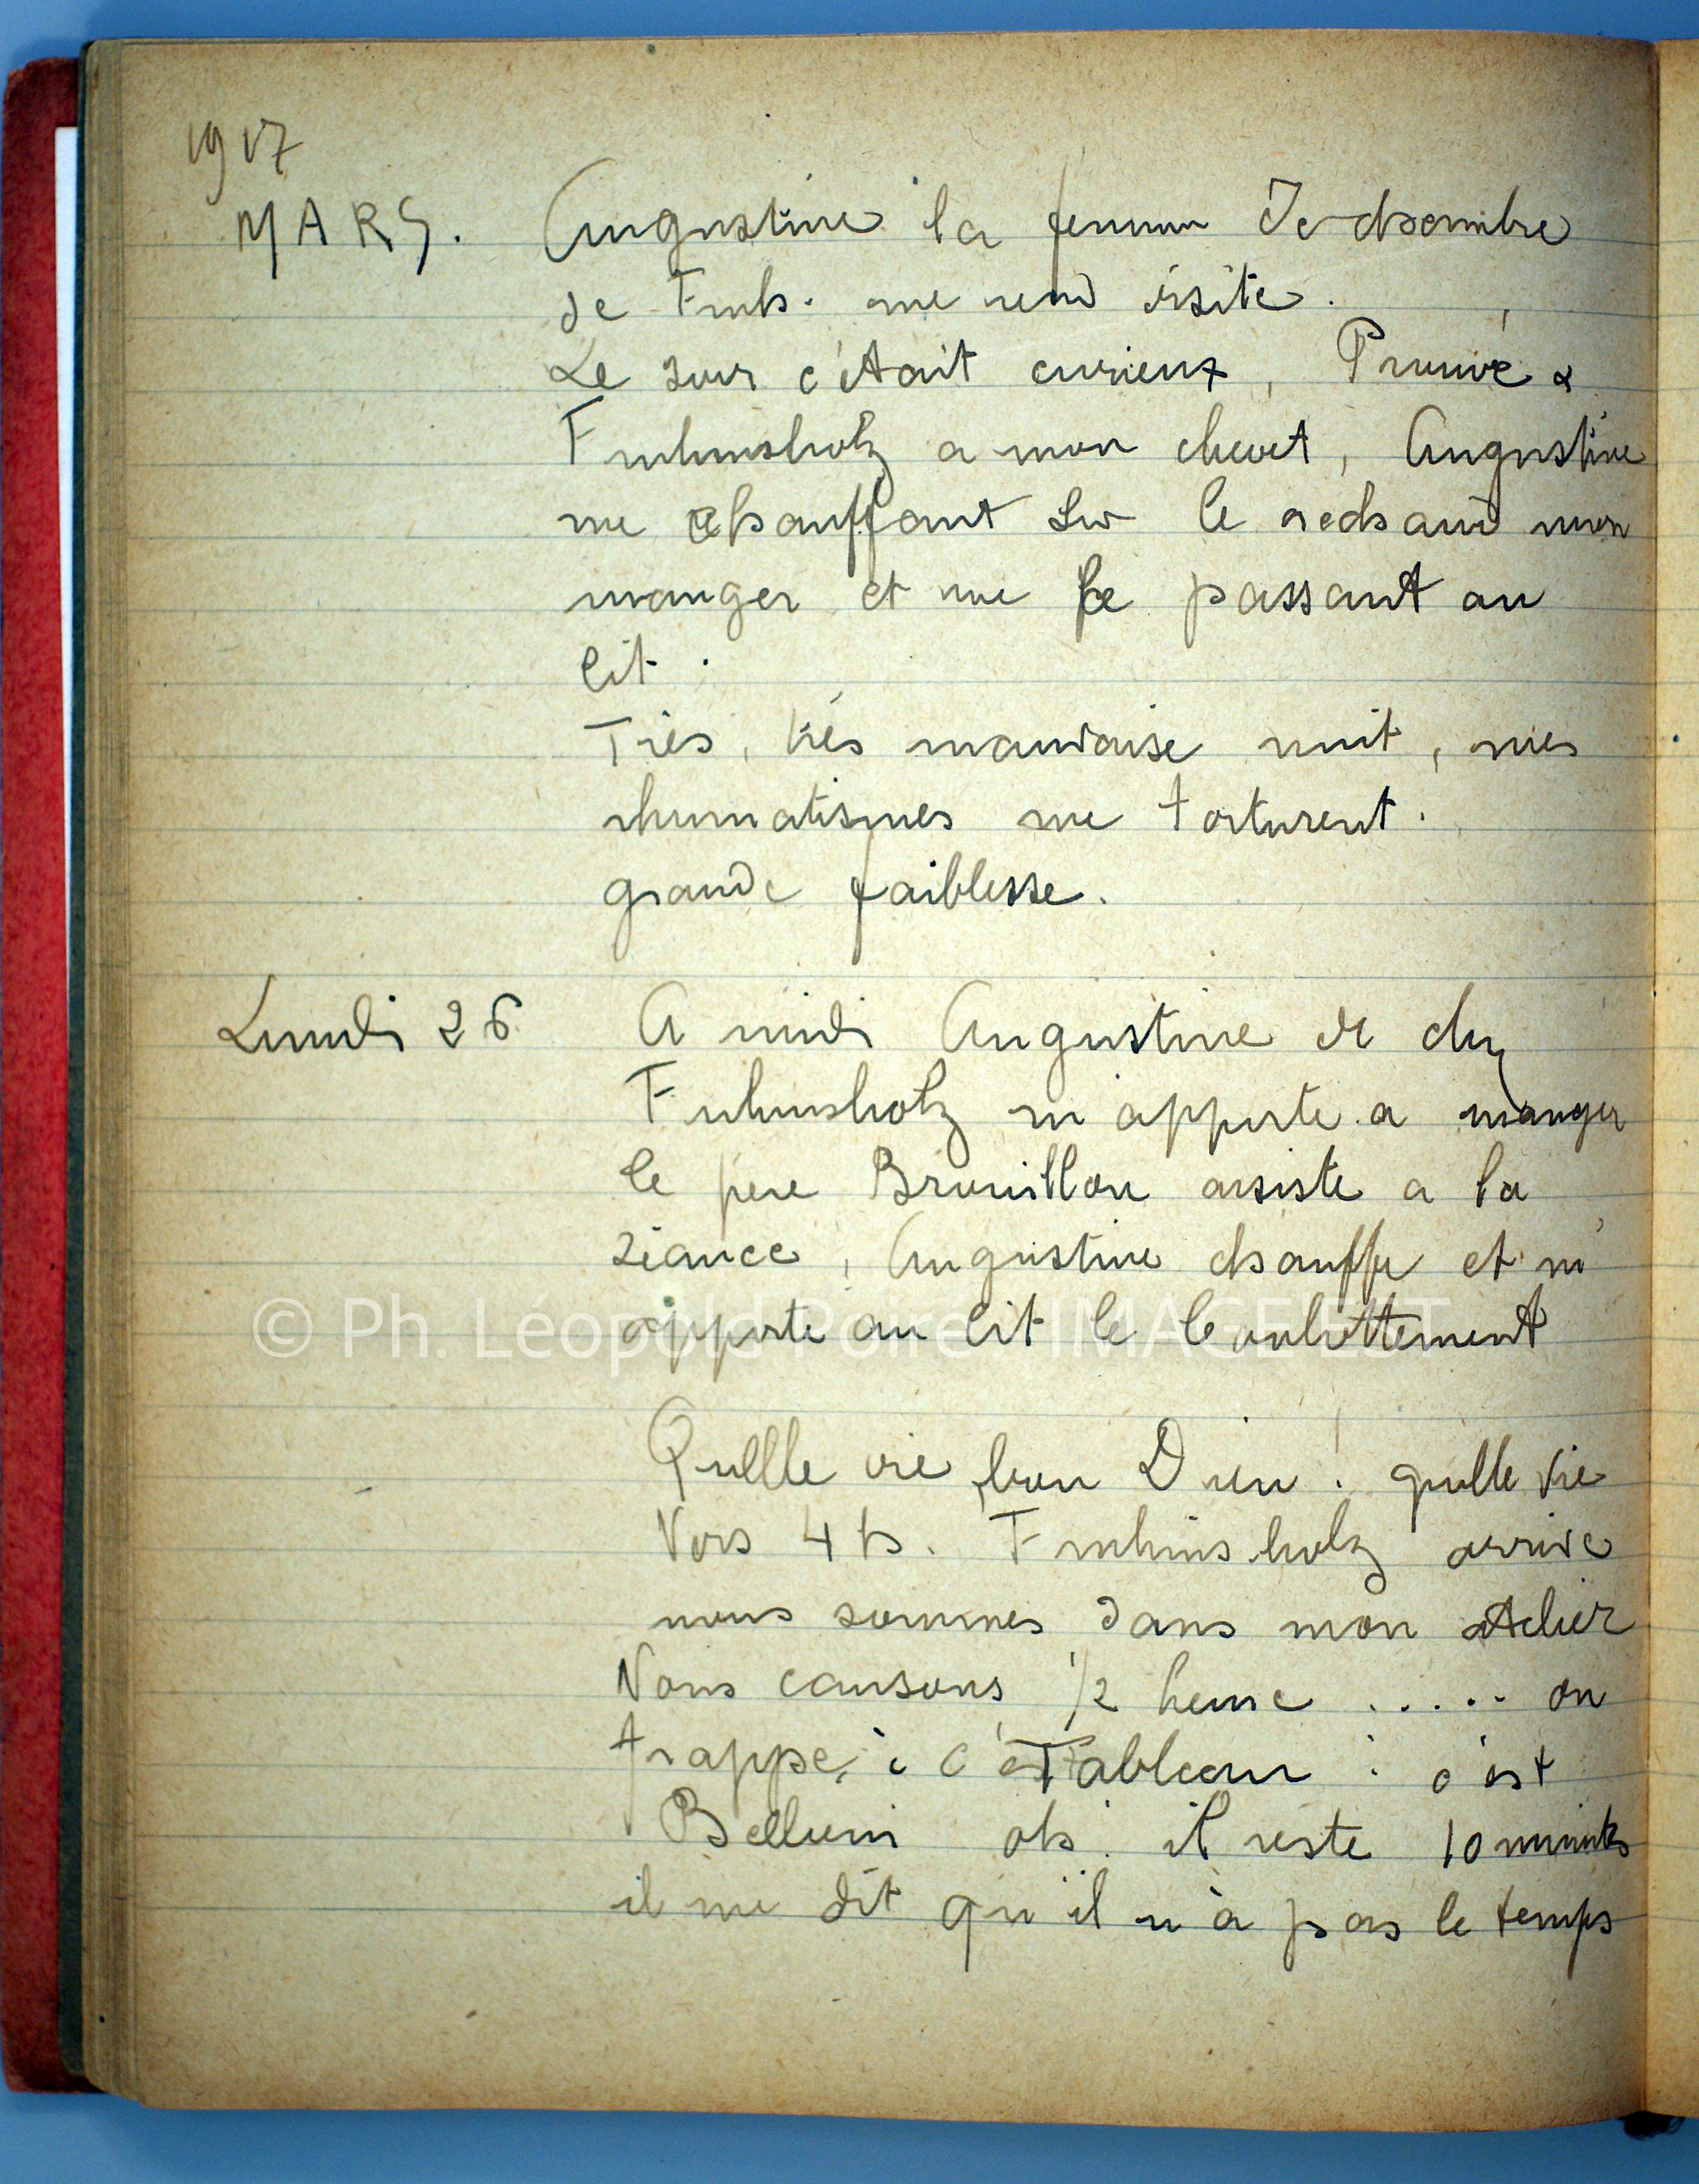 1917
MARS. Augustine la femme de chambre
de Fruhs. me rend visite.
Le soir c'était curieux, Prouvé &
Fruhinsholz a mon chevet, Augustine
me chauffant sur le rechaud mon
manger et me le passant au
lit.
Très, très mauvaise nuit, mes
rhumatismes me torturent.
grande faiblesse.
Lundi 26 A midi Augustine de chez
Fruhinsholz m'apporte a manger
le père Brouillon assiste a la
séance, Augustine chauffe et m'
apporte au lit le
Quelle vie bon Dieu! quelle vie
Vers 4 h. Fruhinsholz arrive
nous sommes dans mon atelier
Nous causons 1/2 heure ..... on
frappe, : c'est Tableau : c'est
Bellieni oh. il reste 10 minutes
il me dit qu'il n'à pas le temps
© Ph. Léopold Poiré IMAGE'EST